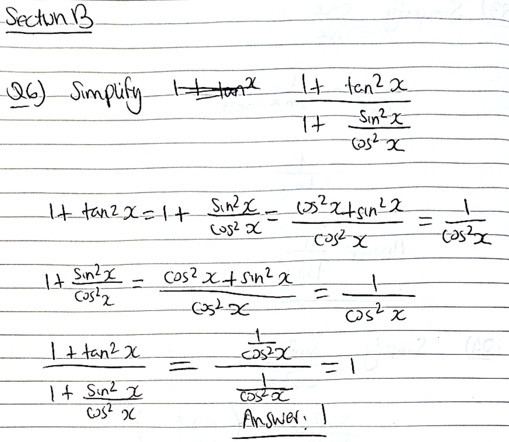 Section B
Q6) Simplify 1+tan x (1 + tan² x)/(1 + sin² x/cos² x)
1 + tan² x = 1 + sin² x/cos² x = (cos² x + sin² x)/cos² x = 1/cos² x
1 + sin² x/cos² x = (cos² x + sin² x)/cos² x = 1/cos² x
(1 + tan² x)/(1 + sin² x/cos² x) = (1/cos² x)/(1/cos² x) = 1
Answer: 1